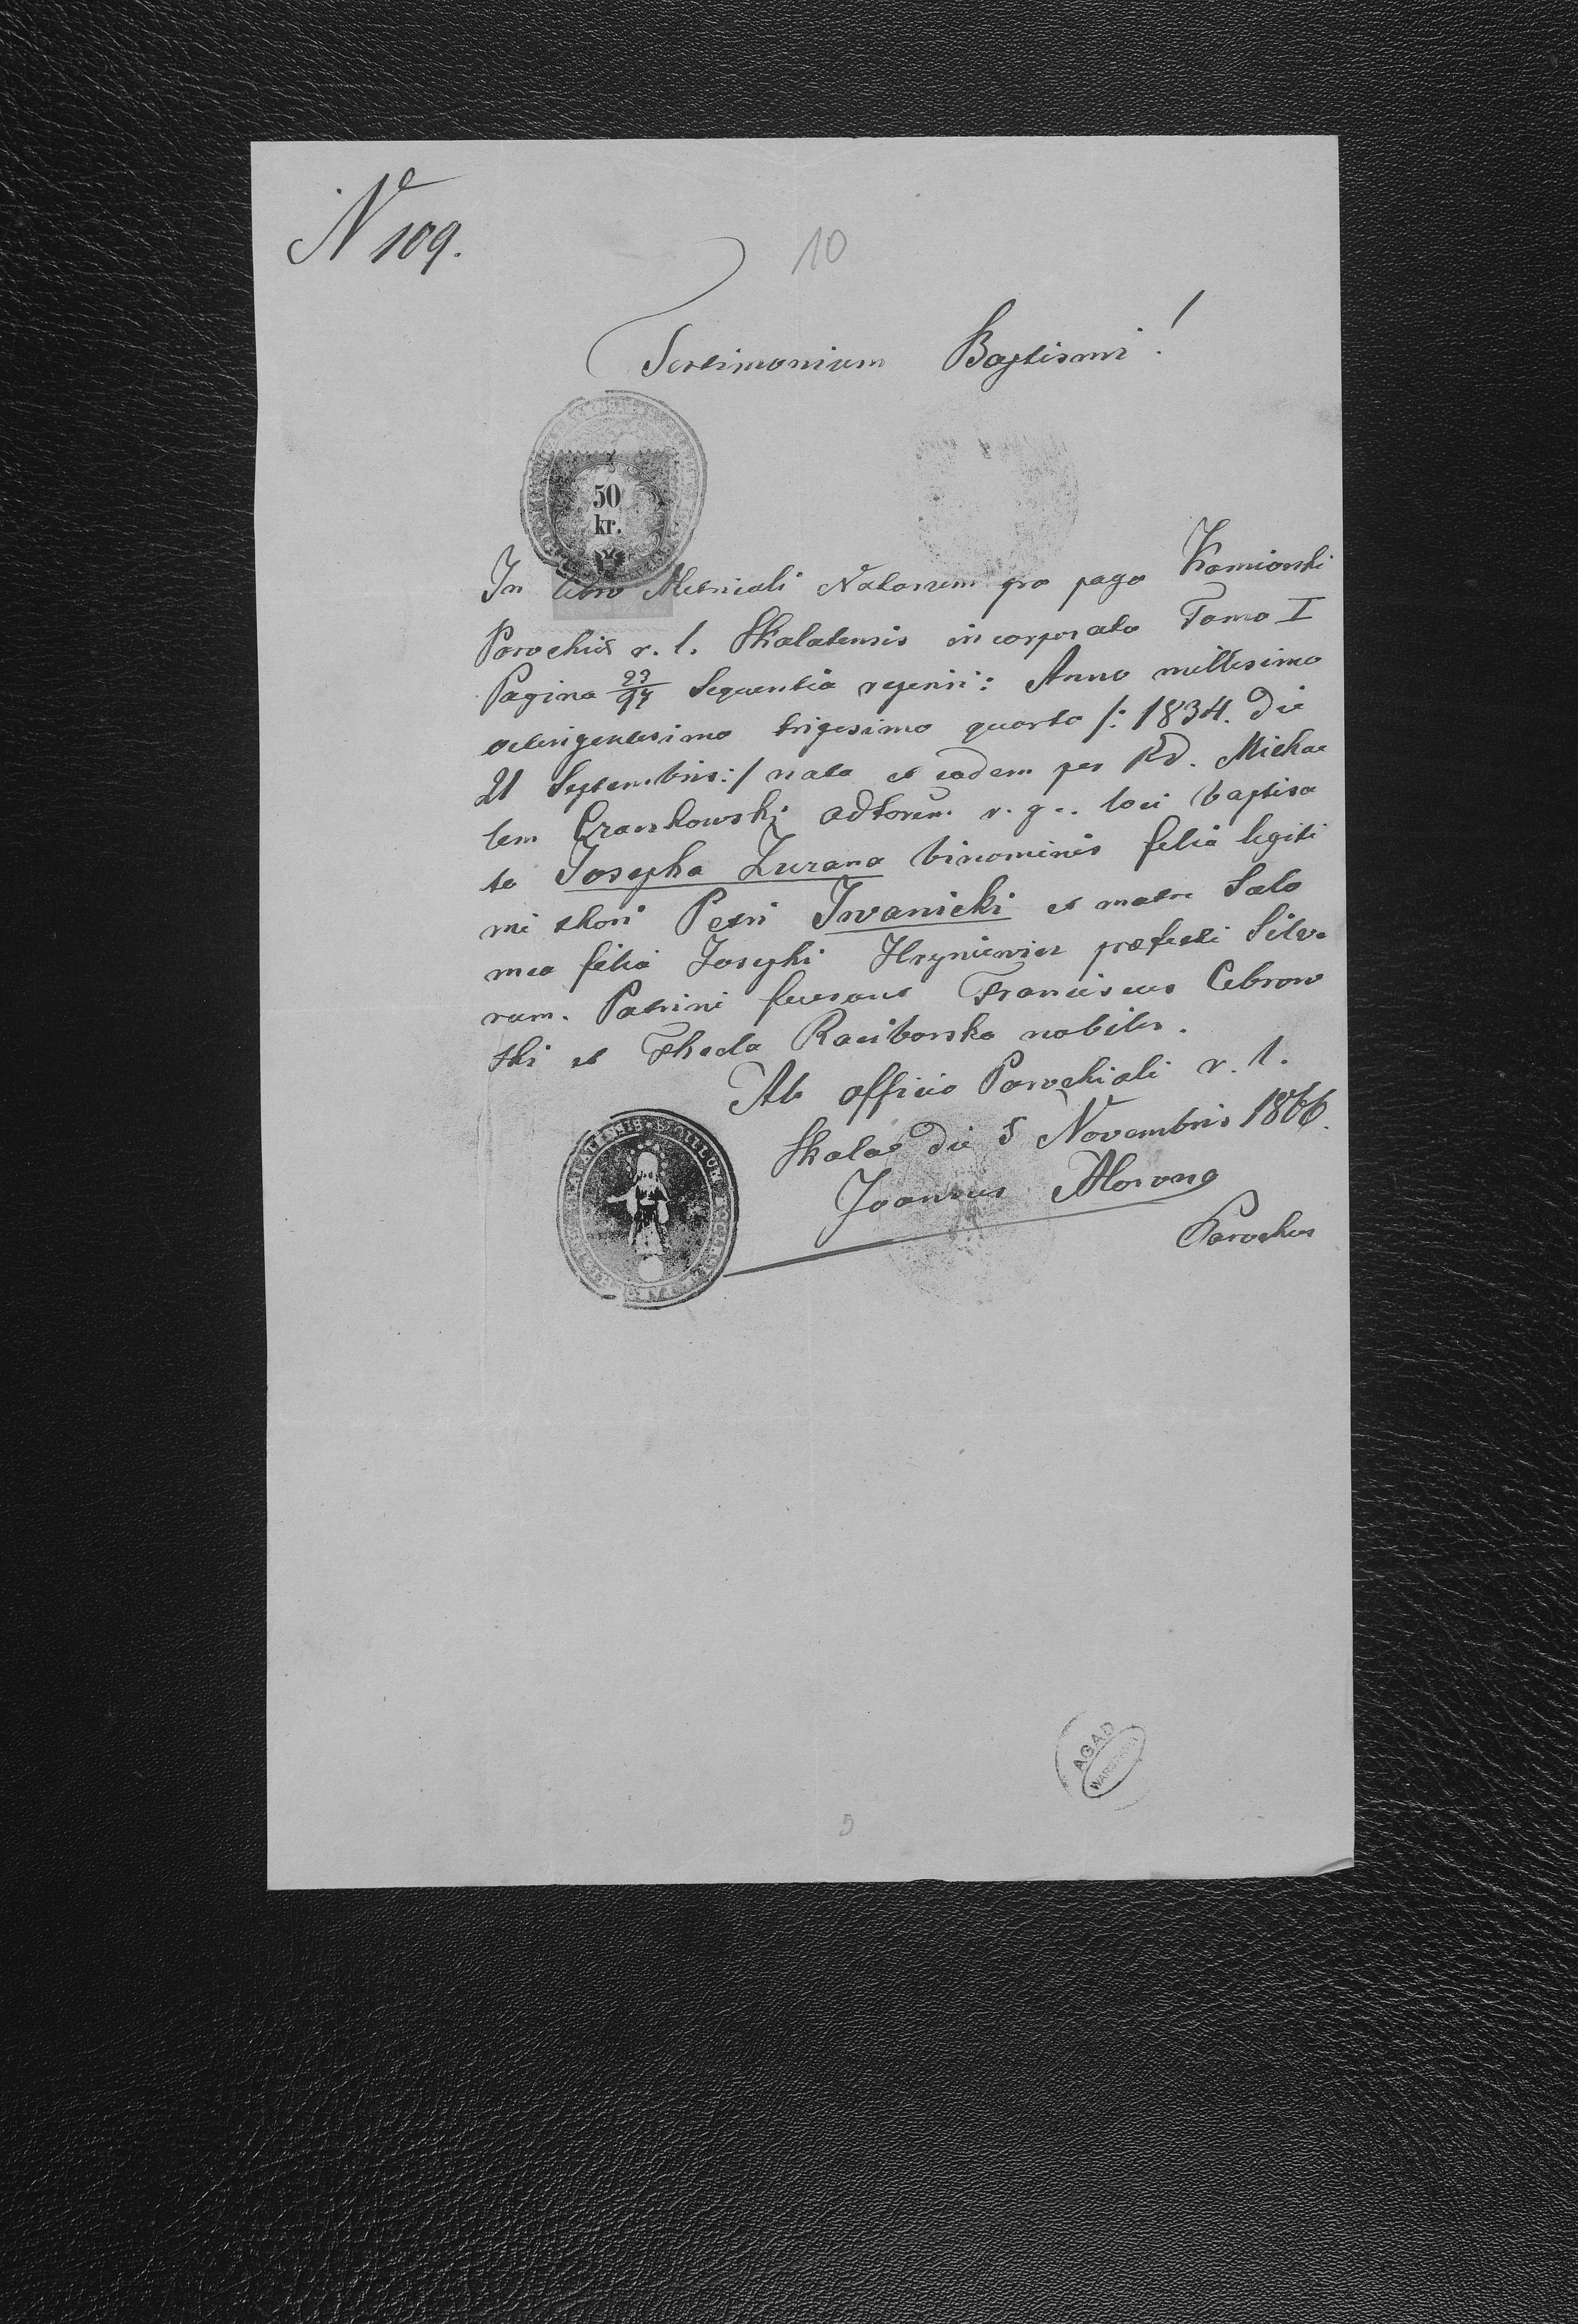 N 109.
10
Testimonium Baptismi!
50
kr.
In libro Metricali Natorum pro pago Kamionki
Parochiæ r. l. Skalatensis incorporato Tomo I
Pagina 23/97 Sequentia reperiri: Anno millesimo
octingentesimo trigesimo quarto /: 1834. die
21 Septembris :/ nata et eadem per Rd. Michae
lem adtorem r. g. c. loci baptisa
ta Josepha Zuzana binominis filia legiti
mi thori Petri Iwanicki et matre Salo
mea filia Josephi Hryniewicz præfecti Silva
rum. Patrini fuerant Franciscus Cebrow
ski et Thecla Raciborska nobiles.
Ab officio Parochiali r. l.
Skalat die 5 Novembris 1866.
Joannes Morong
Parochus
AGAD
WARSZAWA